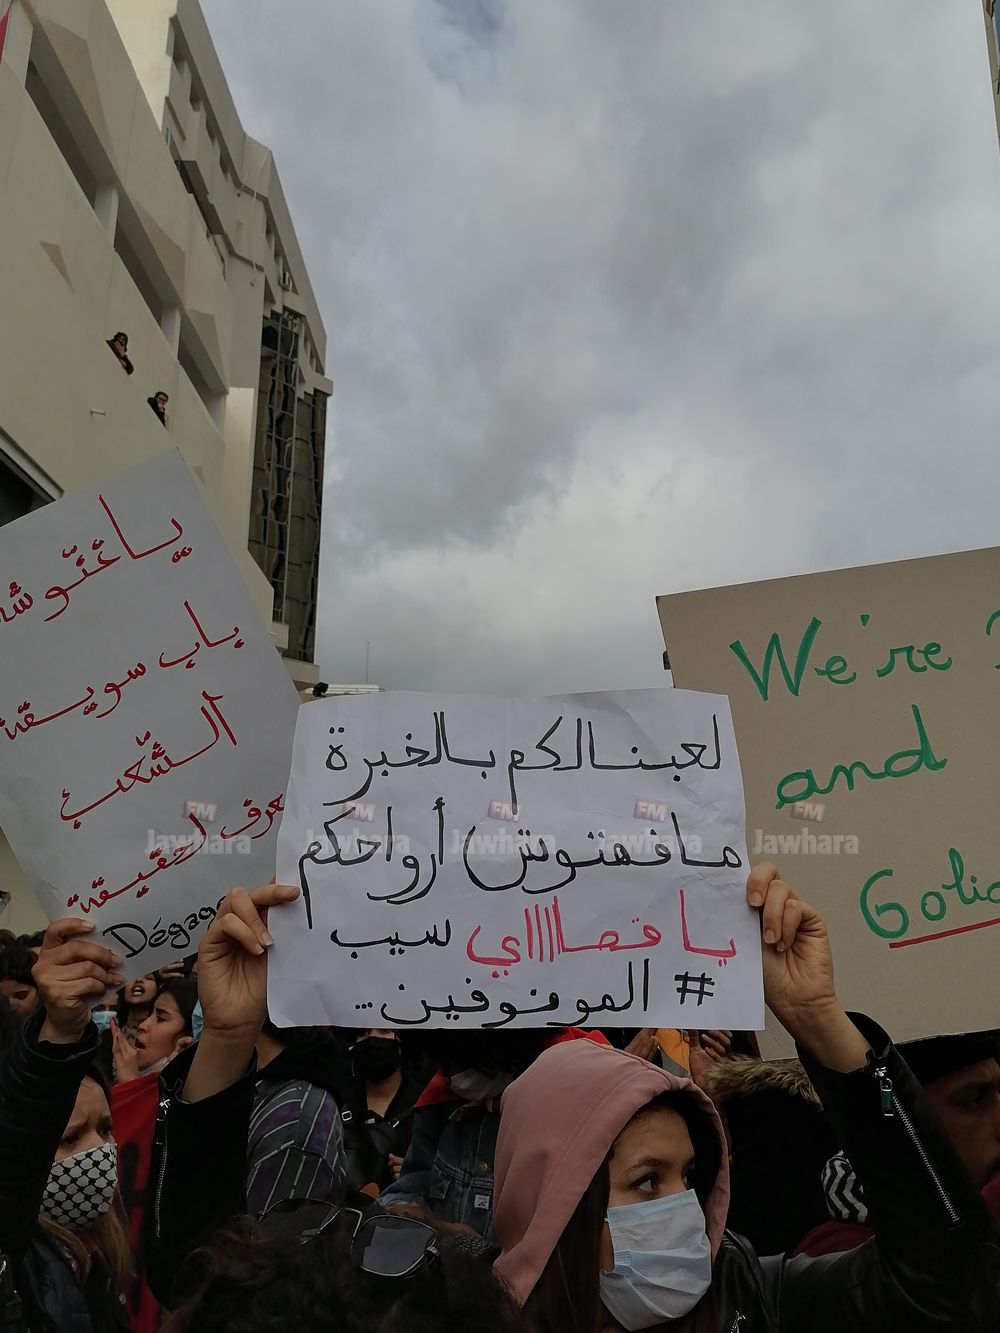 يا غنّوشي
يا ب سويقة
الشّعب
يعرف لحقيقة
Dégage
لعبنالكم بالخبرة
مافهمتوش أرواحكم
يا قصاااااي لسيب
# الموقوفين...
We're
and
FM FM FM FM FM
Jawhara Jawhara Jawhara Jawhara Jawhara